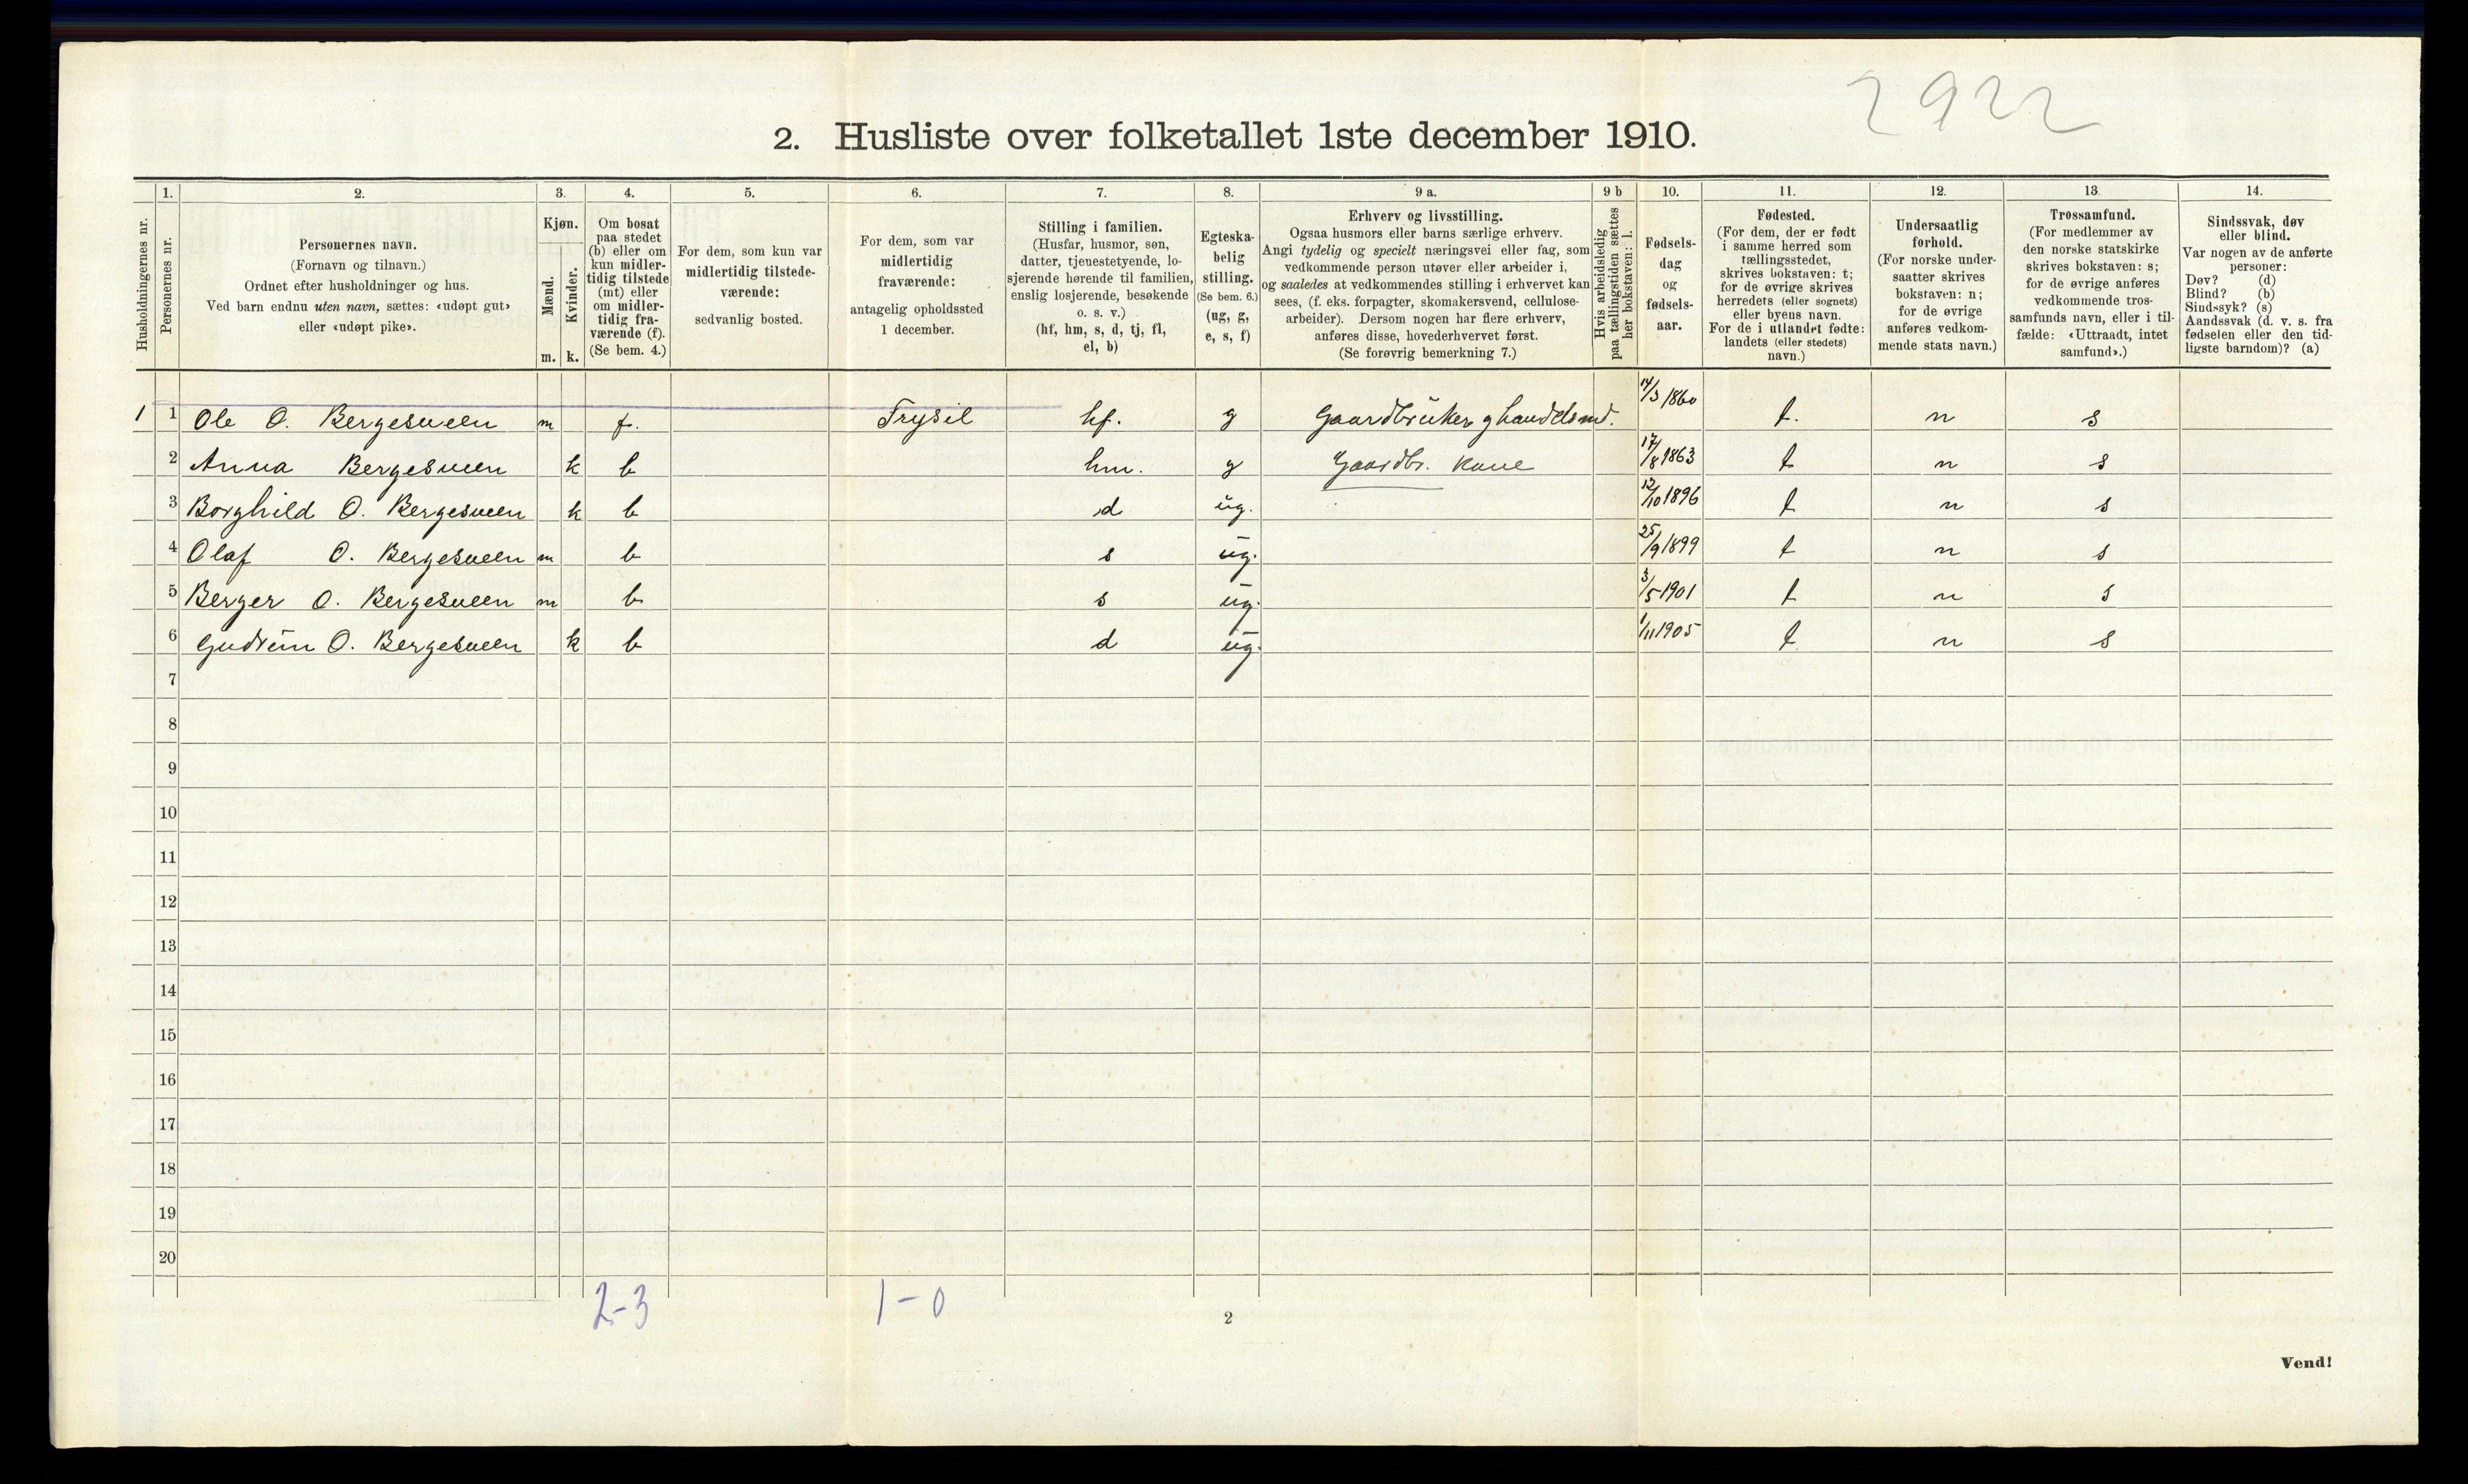 2922
2. Husliste over folketallet 1ste december 1910.
Husholdningernes nr.
1.
Personernes nr.
2.
Personernes navn.
(Fornavn og tilnavn.)
Ordnet efter husholdninger og hus.
Ved barn endnu uten navn, sættes: «udøpt gut»
eller «udøpt pike».
3.
Kjøn.
Mænd.
m.
Kvinder.
k.
4.
Om bosat
paa stedet
(b) eller om
kun midler-
tidig tilstede
(mt) eller
om midler-
tidig fra-
værende (f).
(Se bem. 4.)
5.
For dem, som kun var
midlertidig tilstede-
værende:
sedvanlig bosted.
6.
For dem, som var
midlertidig
fraværende:
antagelig opholdssted
1 december.
7.
Stilling i familien.
(Husfar, husmor, søn,
datter, tjenestetyende, lo-
sjerende hørende til familien,
enslig losjerende, besøkende
o. s. v.)
(hf, hm, s, d, tj, fl,
el, b)
8.
Egteska-
belig
stilling.
(Se bem. 6.)
(ug, g,
e, s, f)
9 a.
Erhverv og livsstilling.
Ogsaa husmors eller barns særlige erhverv.
Angi tydelig og specielt næringsvei eller fag, som
vedkommende person utøver eller arbeider i,
og saaledes at vedkommendes stilling i erhvervet kan
sees, (f. eks. forpagter, skomakersvend, cellulose-
arbeider). Dersom nogen har flere erhverv,
anføres disse, hovederhvervet først.
(Se forøvrig bemerkning 7.)
9 b
Hvis arbeidsledig
paa tællingstiden sættes
her bokstaven: l.
10.
Fødsels-
dag
og
fødsels-
aar.
11.
Fødested.
(For dem, der er født
i samme herred som
tællingsstedet,
skrives bokstaven: t;
for de øvrige skrives
herredets (eller sognets)
eller byens navn.
For de i utlandet fødte:
landets (eller stedets)
navn.)
12.
Undersaatlig
forhold.
(For norske under-
saatter skrives
bokstaven: n;
for de øvrige
anføres vedkom-
mende stats navn.)
13.
Trossamfund.
(For medlemmer av
den norske statskirke
skrives bokstaven: s;
for de øvrige anføres
vedkommende tros-
samfunds navn, eller i til-
fælde: «Uttraadt, intet
samfund».)
14.
Sindssvak, døv
eller blind.
Var nogen av de anførte
personer:
Døv? (d)
Blind? (b)
Sindssyk? (s)
Aandssvak (d. v. s. fra
fødselen eller den tid-
ligste barndom)? (a)
1 1 Ole O. Bergesveen m f. Trysil hf. g Gaardbruker g handelsmd. 14/3 1860 t. n s
2 Anna Bergesveen k b hm. g Gaardbr. Kone 17/8 1863 t n s
3 Borghild O. Bergesveen k b d ug. 12/10 1896 t n s
4 Olaf O. Bergesveen m b s ug. 25/9 1899 t n s
5 Berger O. Bergesveen m b s ug. 3/5 1901 t n s
6 Gudrun O. Bergesveen k b d ug. 1/11 1905 t n s
7
8
9
10
11
12
13
14
15
16
17
18
19
20
2-3 1-0
2
Vend!